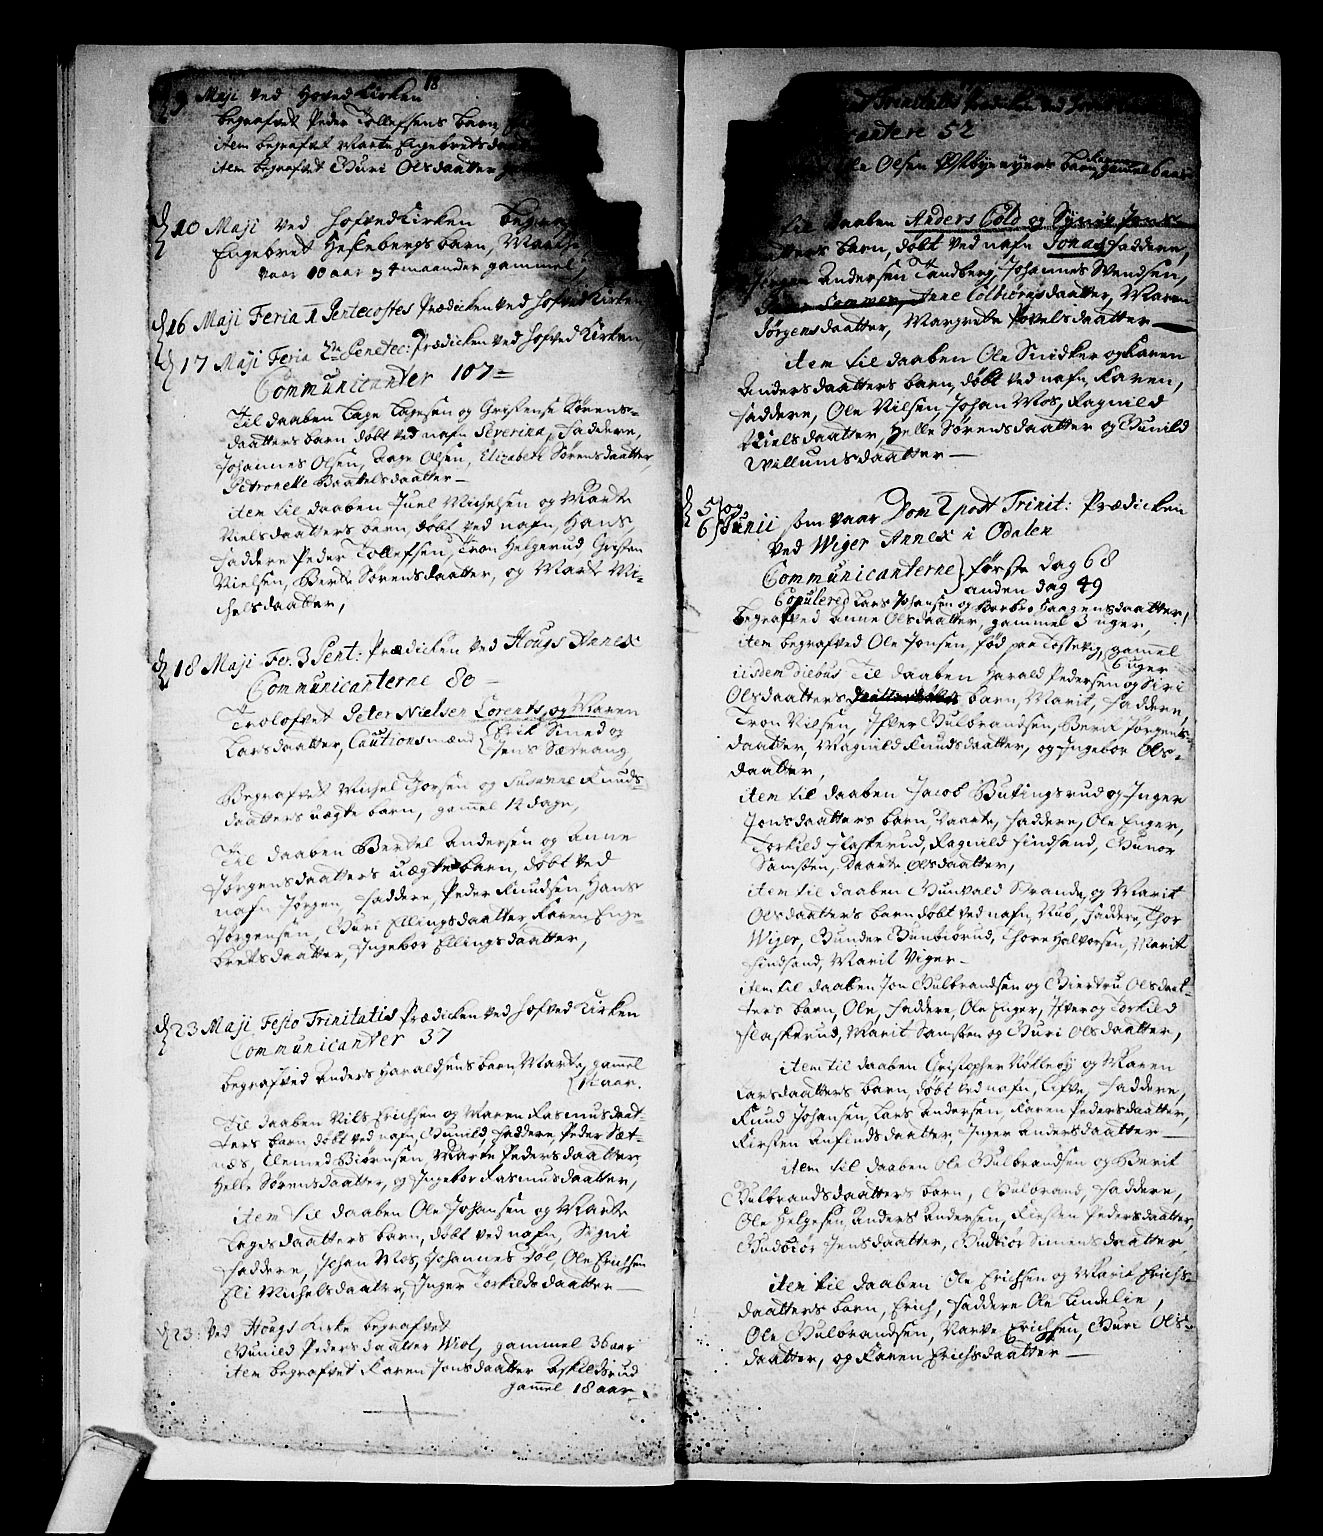 18
9 Maji ved Hoved Kirken
begrafvet Peder Tollefsens barn,
item begrafvet Marte Engebretsd
item begrafvet Guri Olsdaatter
d 10 Maji ved Hofved Kirken begra
Engebret Heskebergs barn, Marthe
vaar 10 aar og 4 maaneder gammel,
d 16 Maji Feria 1 Pentecostes Prædicken ved Hofved Kirken
d 17 Maji Feria 2da Pentec: Prædicken ved Hofved Kirken,
Communicanter 107 =
Til daaben Lage Lagesen og Gristense Sørens-
daatters barn døbt ved nafn Severina, Faddere,
Johannes Olsen, Aage Olsen, Elizabeth Sørensdaatter,
Petronelle Baattelsdaatter —
item til daaben Juel Michelsen og Marte
Nielsdaatters barn, døbt ved nafn, Hans,
Faddere Peder Tollefsen, Tron Helgerud, Gristen
Nielsen, Berte Sørensdaatter, og Marte Mi-
chelsdaatter,
d 18 Maji Fer. 3 Pent: Prædicken ved Hougs Annex
Communicanterne 80 —
Trolofvet Peter Nielsen Lorents, og Maren
Larsdaatter, Cautionsmænd Erik Smed og
Jens Sætrang,
Begrafvet Michel Thorsen og Susanne Knuds-
daatters uægte barn, gammel 12 dage,
Til daaben Bertel Andersen og Anne
Jørgensdaatters uægte barn, døbt ved
nafn Jørgen, Faddere, Peder Knudsen, Hans
Jørgensen, Guri Ellingsdaatter, Karen Enge-
bretsdaatter, Ingebor Ellingsdaatter,
d 23 Maji Festo Trinitatis Prædicken ved Hofved Kirken
Communicanter 37
begrafved Anders Haraldsens barn Marte, gammel
11 aar.
Til daaben Nils Erichsen og Maren Rasmusdaat-
ters barn døbt ved nafn, Gunild, Faddere, Peder Sæt-
næs, Clemed Biørnsen, Marte Pedersdaatter,
Helle Sørensdaatter, og Ingebor Rasmusdaatter,
item til daaben Ole Johansen og Marte
Lagesdaatters barn, døbt ved nafn, Signi
Faddere, Johan Mos, Johannes Døl, Ole Erichsen
Eli Michelsdaatter, Inger Torkildsdaatter —
d 23: Ved Hougs Kirke begrafvet
Gunild Pedersdaatter Wiol, gammel 36 aar
item begrafvet Karen Jonsdaatter Askildsrud
gammel 18 aar
Trinitatis Prædicken ved Hofved
canterne 52
Ole Olsen Østbyeneyers barn, gammel 6 aar
til daaben Anders Cold og Synnie Jens
datters barn, døbt ved nafn Jonas, Faddere,
Jørgen Andersen Tandberg, Johannes Svendsen,
Peder Sommer, Anne Colbiørnsdaatter, Maren
Jørgensdaatter, Margrete Povelsdaatter —
item til daaben Ole Snidker og Karen
Andersdaatters barn, døbt ved nafn, Karen,
Faddere, Ole Nilsen, Johan Mos, Ragnild
Nielsdaatter, Helle Sørensdaatter og Gunild
Willumsdaatter —
d 5 og
d 6 Junii som vaar Dom 2 post Trinit: Prædicken
ved Wiger Annex i Odalen
Communicanterne første dag 68
anden dag 49
Copulered Lars Johansen og Barbro Haagensdaatter,
Begrafved Anne Olsdaatter, gammel 3 uger,
item begrafved Ole Jonsen, fød paa Tossevig, gamel
6 uger
iisdem diebus Til daaben Harald Pedersen og Siri
Olsdaatters barn, Marit, Faddere,
Tron Nilsen, Iffver Gulbrandsen, Berit Jørgens-
daatter, Magnild Knudsdaatter, og Ingebor Ols-
daatter,
item til daaben Jacob Butingsrud og Inger
Jonsdaatters barn, Daarte, Faddere, Ole Enger,
Torkild Flaskerud, Ragnild Findsand, Gunor
Samsten, Daarte Olsdaatter,
item til daaben Gunvald Strande, og Marit
Olsdaatters barn døbt ved nafn, Aub, Faddere, Thor
Wiger, Gunder Gunbiørud, Thore Halvorsen, Marit
Findsand, Marit Viger —
item til daaben Jon Gulbrandsen og Giertru Olsdaat-
ters barn, Ole, Faddere, Ole Enger, Iffver og Torkild
Flaskerud, Marit Samsten og Guri Olsdaatter,
item til daaben Christopher Nøkleby og Maren
Larsdaatters barn, døbt ved nafn, Eiffe, Faddere,
Knud Johansen, Lars Andersen, Karen Pedersdaatter,
Kirsten Anfindsdaatter, Inger Andersdaatter —
item til daaben Ole Gulbrandsen og Berit
Gulbrandsdaatters barn, Gulbrand, Faddere,
Ole Helgesen, Anders Andersen, Kirsten Pedersdaatter,
Gudbiør Jensdaatter, Gudbior Simensdaatter
item til daaben Ole Erichsen og Marit Erichs-
daatters barn, Erich, Faddere Ole Lindelie,
Ole Gulbrandsen, Narve Erichsen, Guri Ols-
daatter, og Karen Erichsdaatter —